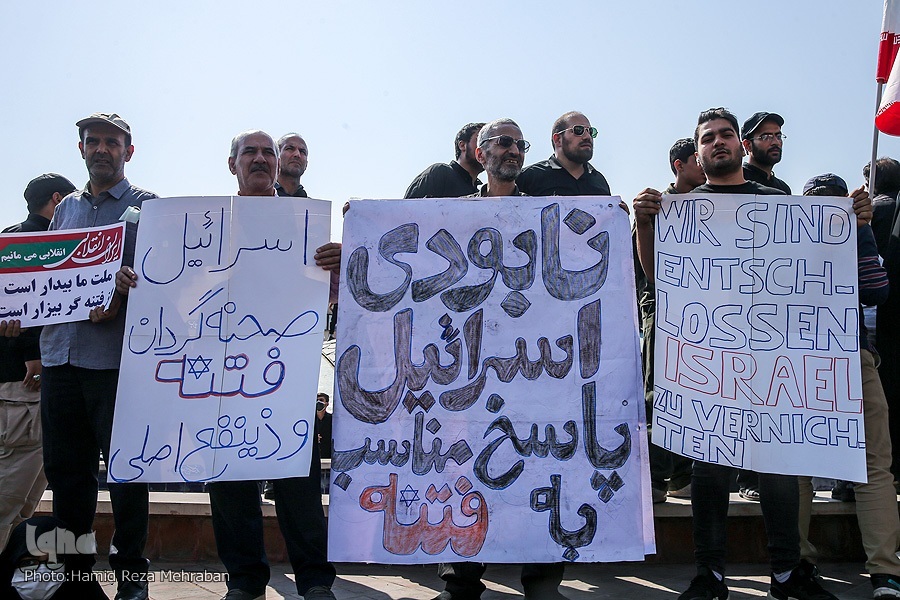 ایران انقلابی
انقلابی می مانیم
ملت ما بیدار است
از فتنه گر بیزار است
اسرائیل
صحنه گردان
فتنه
و ذینفع اصلی
نابودی
اسرائیل
پاسخ مناسب
به فتنه
WIR SIND
ENTSCH-
LOSSEN
ISRAEL
ZU VERNICH-
TEN
iqna
Photo:Hamid Reza Mehraban